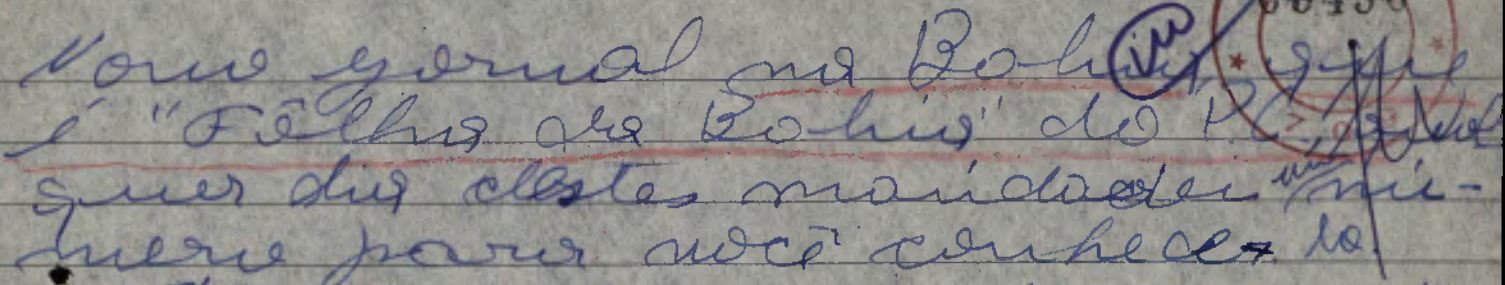 Novo jornal na Bahia, que
é "Fôlha da Bahia" do PC. Qual
quer dia destes mandarei um nú-
mero para você conhece-lo.